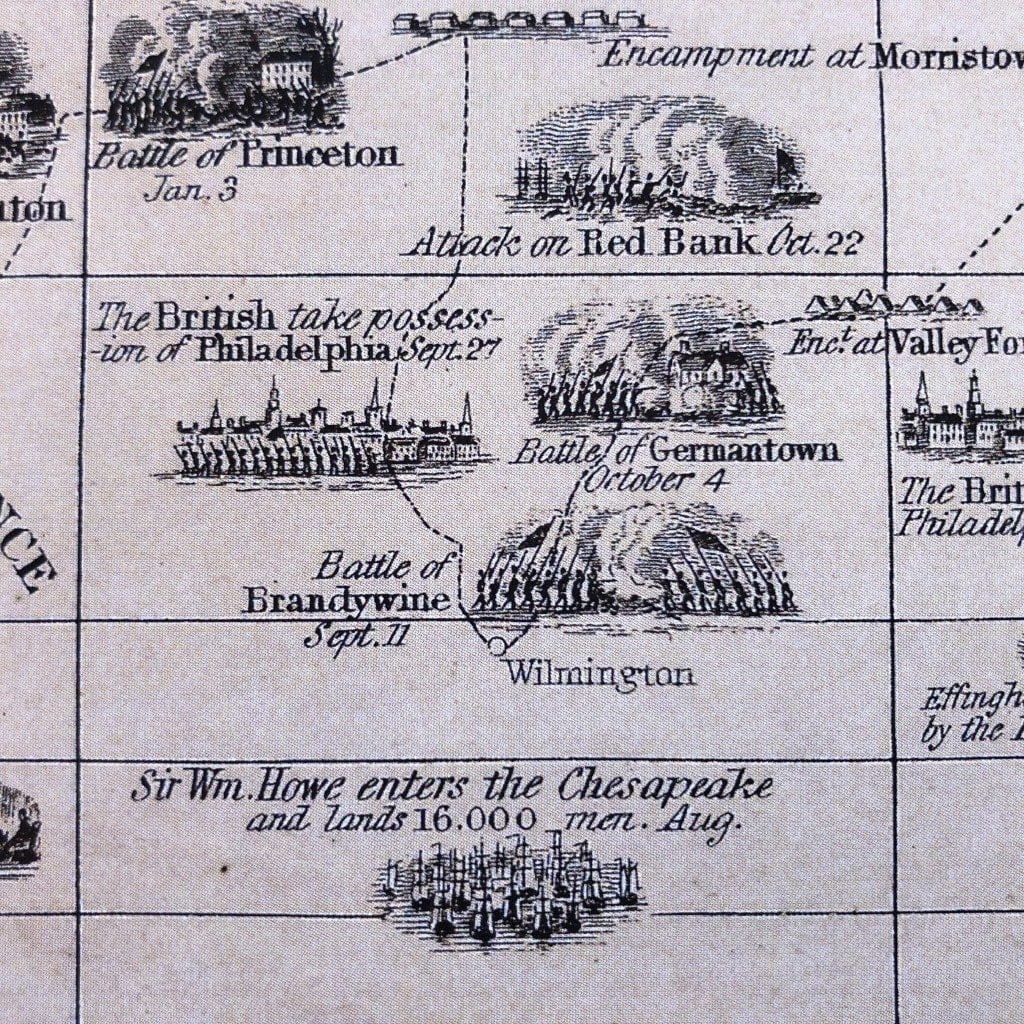 Encampment at Morristow
Battle of Princeton
Jan. 3
nton
Attack on Red Bank Oct. 22
The British take possess-
-ion of Philadelphia Sept. 27
Enct. at Valley Fo
Battle of Germantown
October 4
The Brit
Philadelp
NCE
Battle of
Brandywine
Sept. 11
Wilmington
Effingh
by the
Sir Wm. Howe enters the Chesapeake
and lands 16.000 men. Aug.